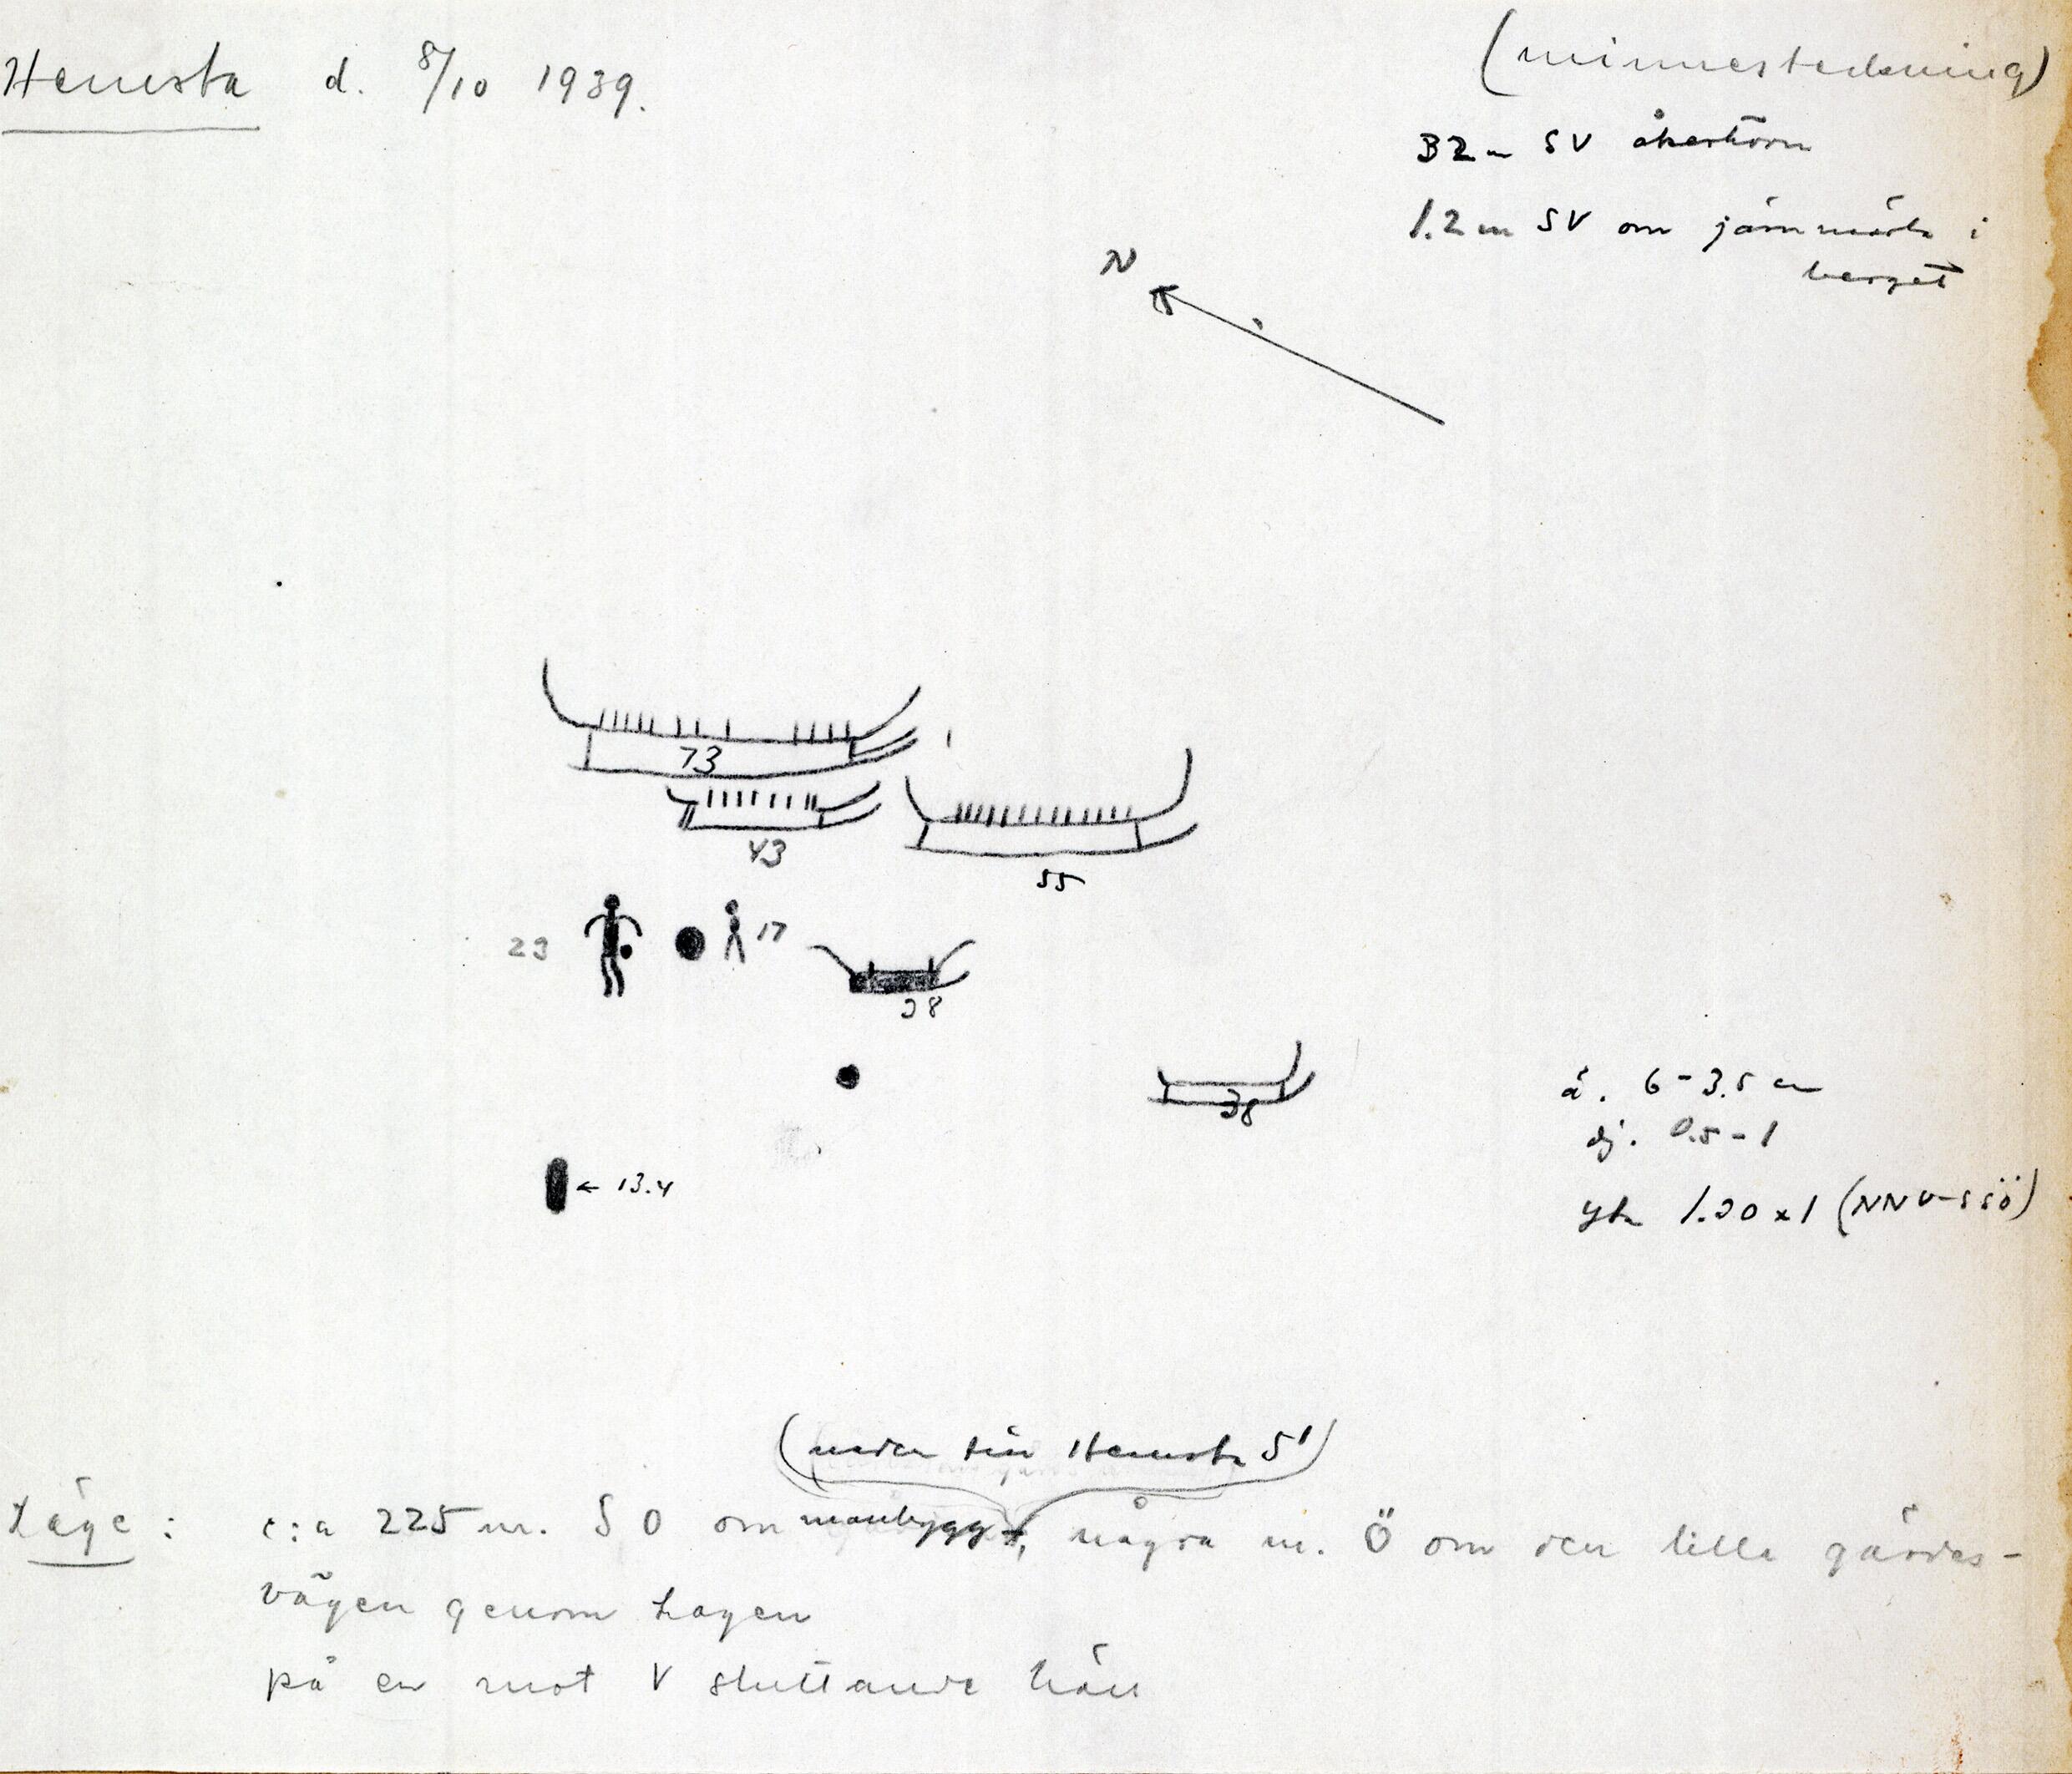 Hemsta d. 8/10 1939.
(minnesteckning)
32 m SV åkerhörn
1.2 m SV om järnmärke i
berget
N
73
43
55
23
17
38
38
← 13.4
å. 6-3.5 cm
dj. 0.5-1
yta 1.20 x 1 (NNV-SSÖ)
(Hemsta 5)
Läge: c:a 225 m. SO om några m. Ö om den lilla gärdes-
vägen genom hagen
på en mot V sluttande häll